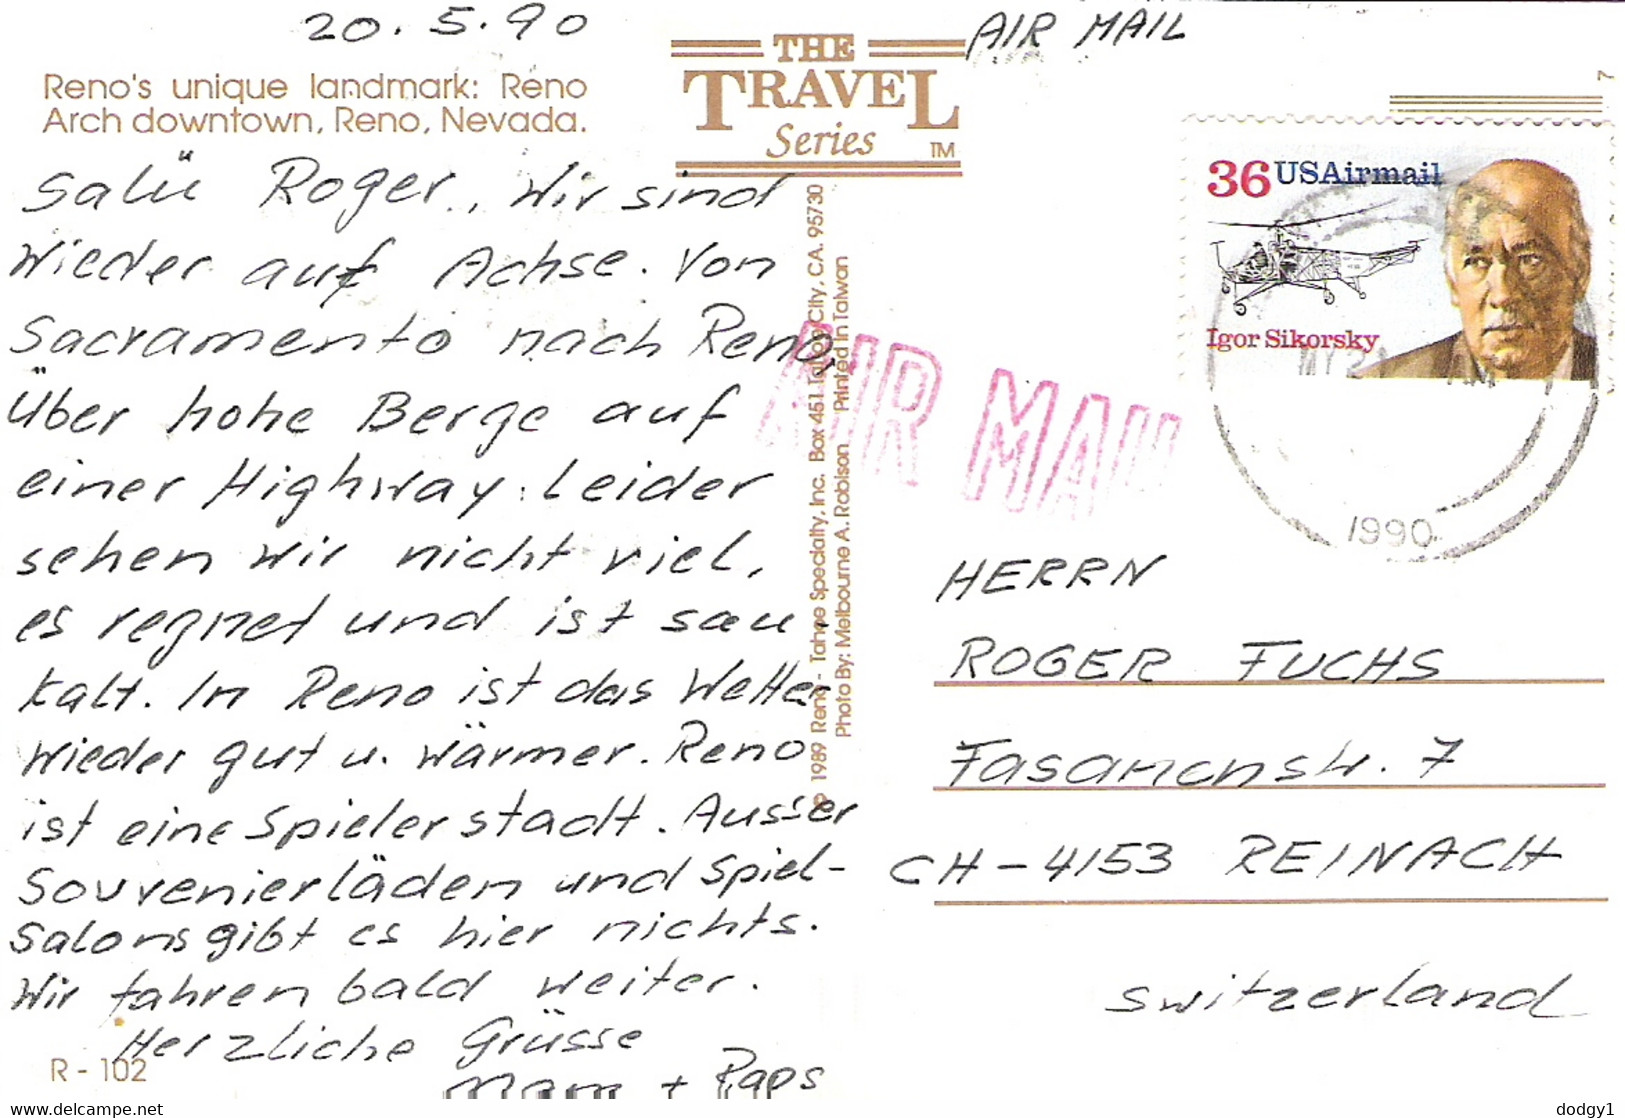 20.5.90
AIR MAIL
THE
TRAVEL
Series
TM
7
Reno's unique landmark: Reno
Arch downtown, Reno, Nevada.
Salü Roger., Wir sind
wieder auf Achse. Von
Sacramento nach Reno,
Über hohe Berge auf
einer Highway. Leider
sehen wir nicht viel,
es regnet und ist sau-
kalt. In Reno ist das Wetter
wieder gut u. wärmer. Reno
ist eine Spielerstadt. Ausser
Souvenierläden und Spiel-
Salons gibt es hier nichts.
Wir fahren bald weiter.
Herzliche Grüsse
Mam + Paps
R - 102
© 1989 Reno - Tahoe Specialty, Inc. Box 451 Tahoe City, CA. 95730
Photo By: Melbourne A. Robison Printed in Taiwan
AIR MAIL
36 USAirmail
Igor Sikorsky
1990
HERRN
ROGER FUCHS
Fasanenstr. 7
CH-4153 REINACH
Switzerland
dodgy1
www.delcampe.net